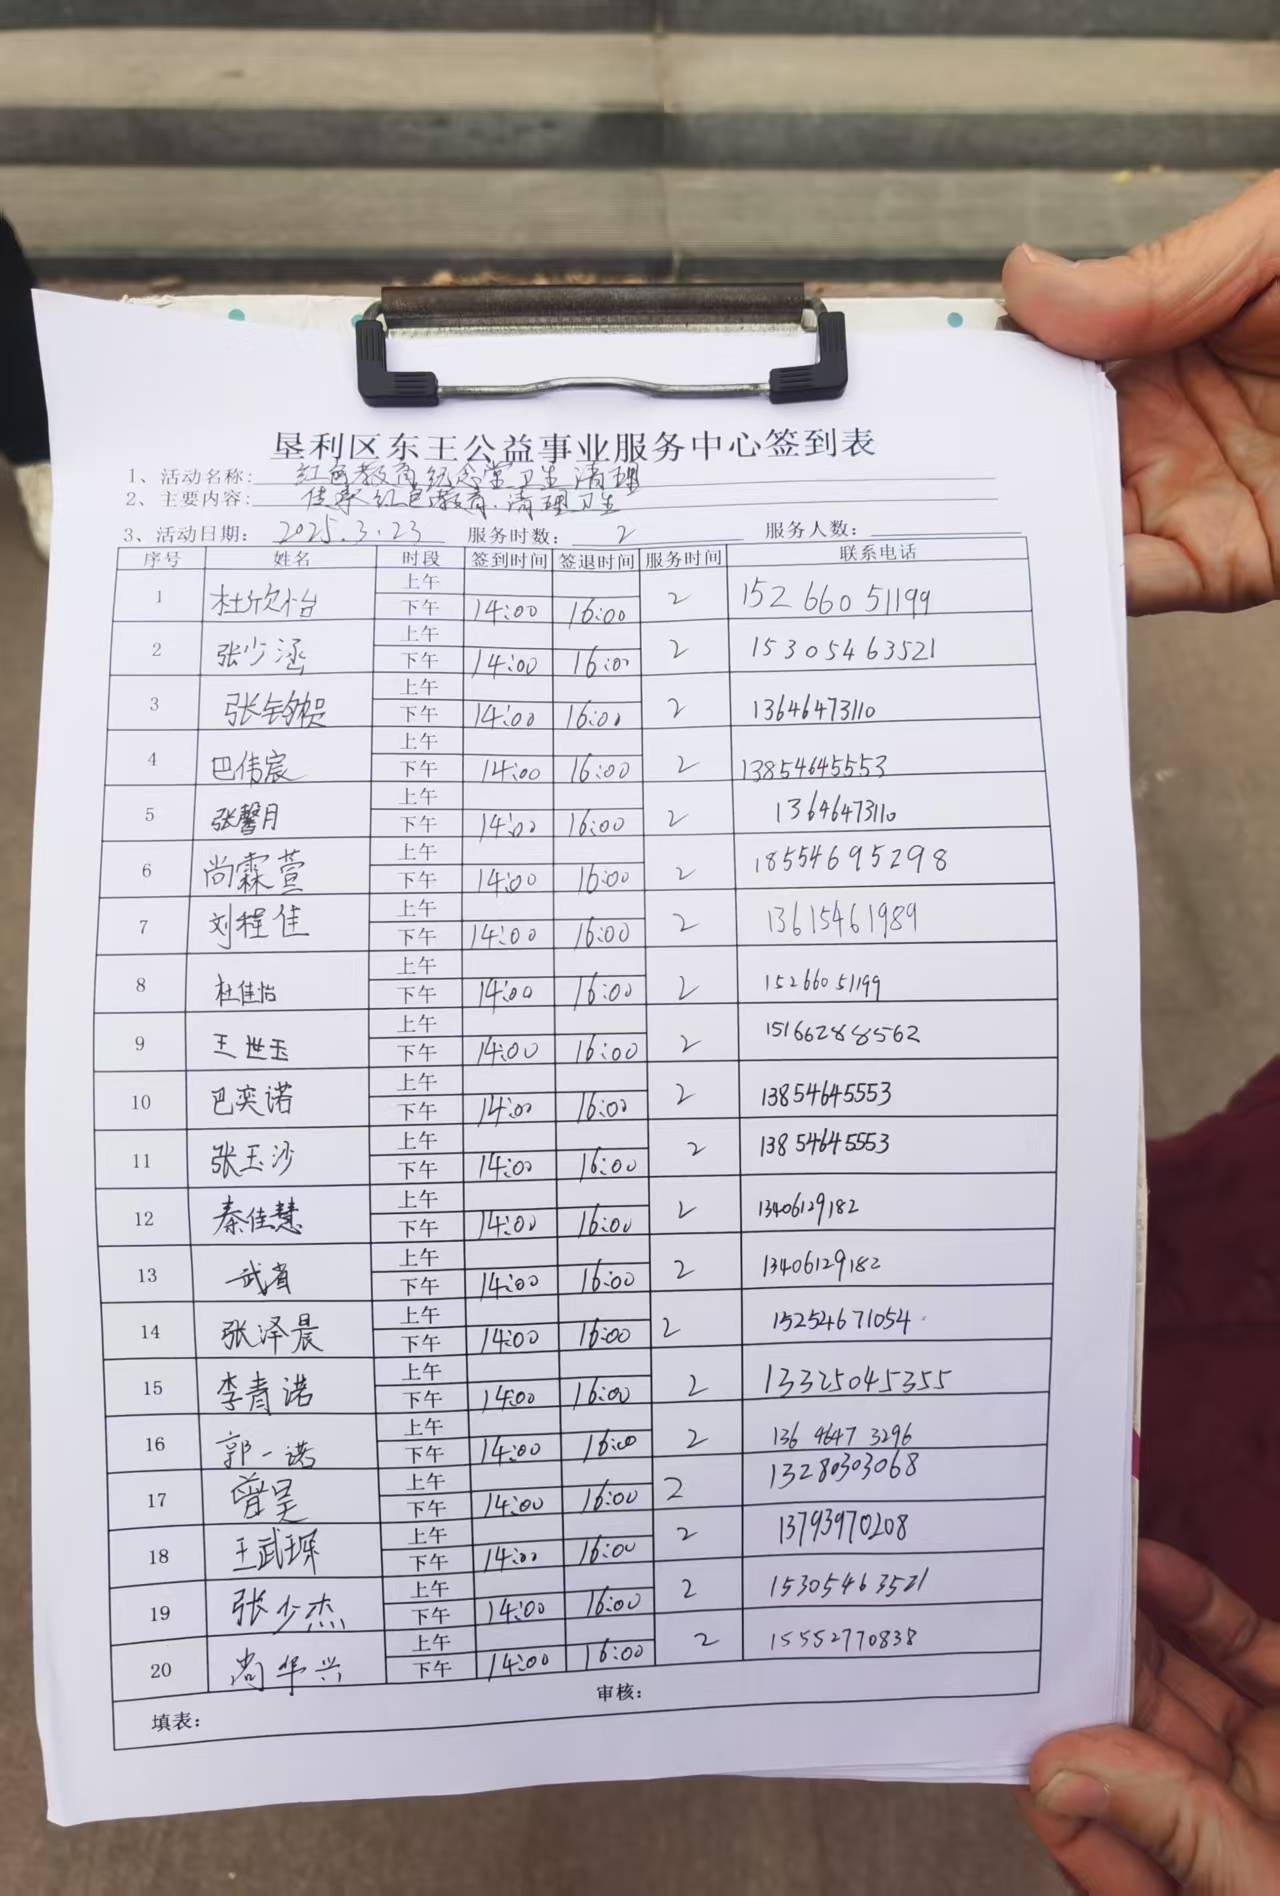 垦利区东王公益事业服务中心签到表
1、活动名称: 红色教育纪念堂卫生清理
2、主要内容: 传承红色教育.清理卫生
3、活动日期: 2025.3.23 服务时数: 2 服务人数:
序号 姓名 时段 签到时间 签退时间 服务时间 联系电话
1 杜欣怡 上午 下午 14:00 16:00 2 15266051199
2 张少涵 上午 下午 14:00 16:00 2 15305463521
3 张钧贺 上午 下午 14:00 16:00 2 13646473110
4 巴伟宸 上午 下午 14:00 16:00 2 13854645553
5 张馨月 上午 下午 14:00 16:00 2 13646473110
6 尚霖萱 上午 下午 14:00 16:00 2 18554695298
7 刘程佳 上午 下午 14:00 16:00 2 13615461989
8 杜佳怡 上午 下午 14:00 16:00 2 15266051199
9 王世玉 上午 下午 14:00 16:00 2 15166288562
10 巴奕诺 上午 下午 14:00 16:00 2 13854645553
11 张玉沙 上午 下午 14:00 16:00 2 13854645553
12 秦佳慧 上午 下午 14:00 16:00 2 13406129182
13 武 上午 下午 14:00 16:00 2 13406129182
14 张泽晨 上午 下午 14:00 16:00 2 15254671054
15 李青诺 上午 下午 14:00 16:00 2 13325045355
16 郭一诺 上午 下午 14:00 16:00 2 13646473296
17 曾昊 上午 下午 14:00 16:00 2 13280303068
18 王武琛 上午 下午 14:00 16:00 2 13793970208
19 张少杰 上午 下午 14:00 16:00 2 15305463521
20 尚华兴 上午 下午 14:00 16:00 2 15552770838
填表: 审核: